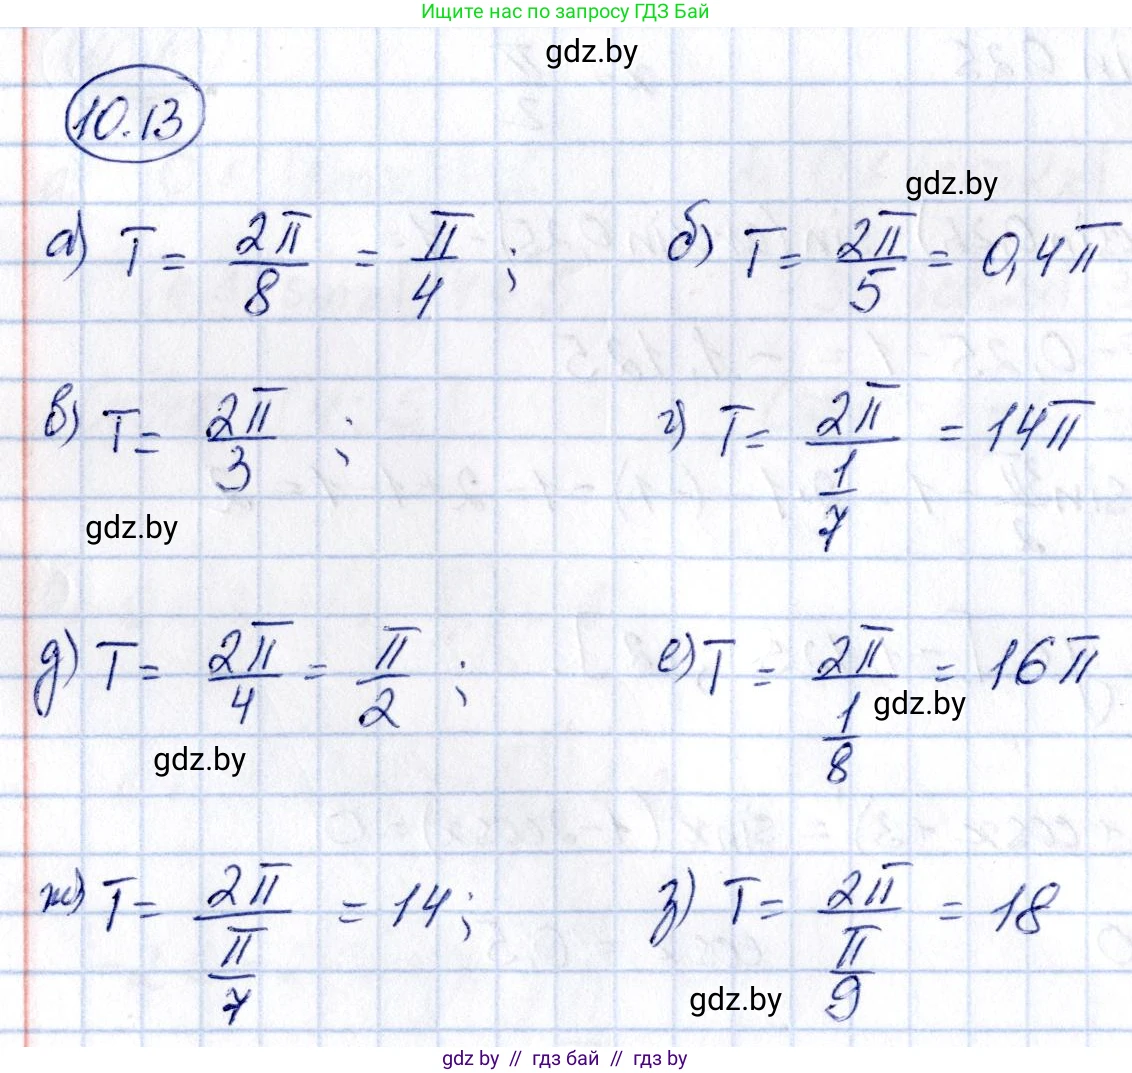 Ищите нас по запросу ГДЗ Бай
gdz.by
10.13
gdz.by
а) T = 2π/8 = π/4 ; б) T = 2π/5 = 0,4π
в) T = 2π/3 ; г) T = 2π/(1/7) = 14π
gdz.by
д) T = 2π/4 = π/2 ; е) T = 2π/(1/8) = 16π
gdz.by
gdz.by
ж) T = 2π/(π/7) = 14; з) T = 2π/(π/9) = 18
gdz.by
gdz by // гдз бай // гдз by